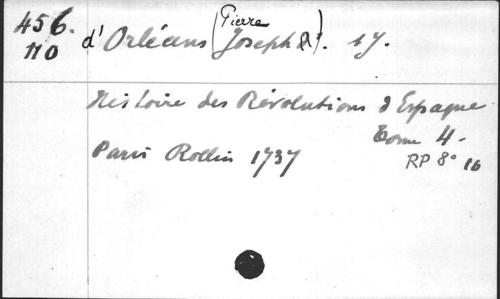 456.
110
d'Orléans (Pierre Joseph d'). 17.
Histoire des Révolutions d'Espagne
Tome 4.
Paris Rollin 1737
RP 8° 16